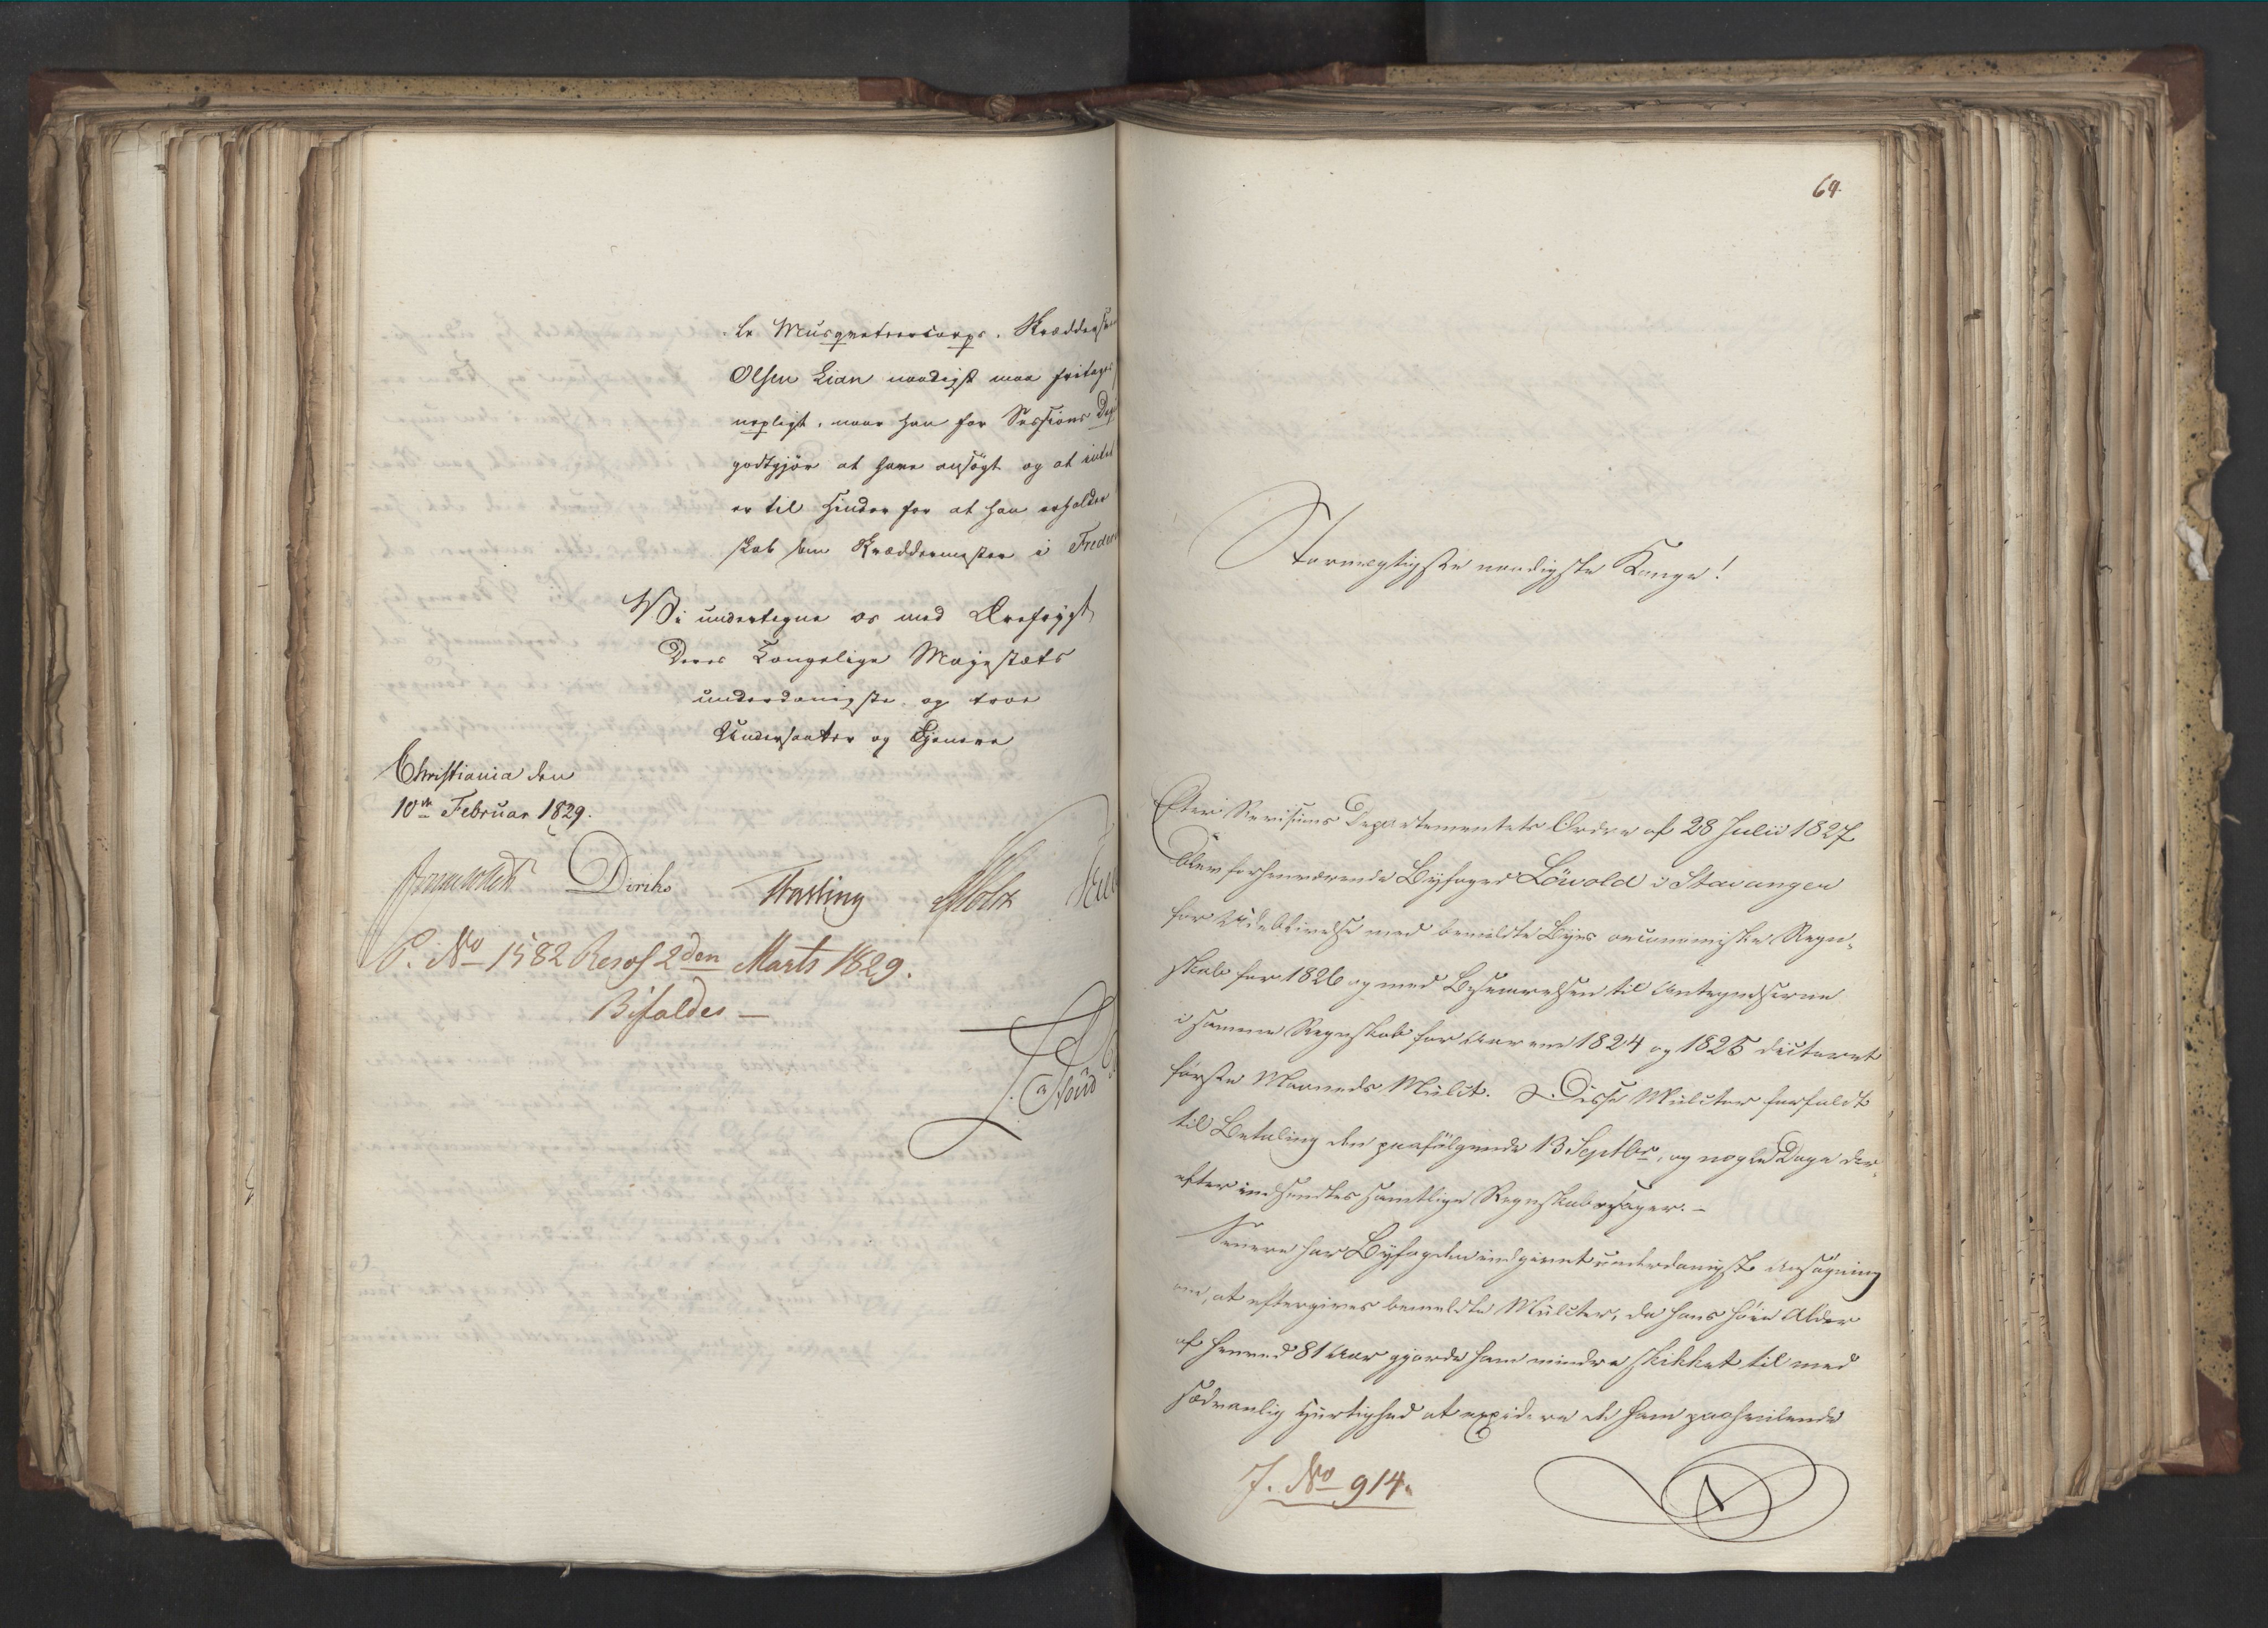 le Musqveteercorps, Skrædder
Olsen Lian naadigst maa fritages
nepligt, naar han for Sessions
godtgjör at have ansögt og at intet
er til Hinder for at han erholder
skab som Skræddermester i
Vi undertegne os med Ærefrygt
Deres Kongelige Majestæts
underdanigste og troe
Undersaatter og Tjenere
Christiania den
10de Februar 1829.
Sommerhielm Diriks Fasting Holst
P. No 1582 Resol 2den Marts 1829.
Bifaldes —
64.
Stormægtigste naadigste Konge!
Efter Revisions Departementets Ordre af 28 Julii 1827
blev forhenværende Byfoged Löwold i Stavanger
for Udeblivelse med bemeldte Byes oeconomiske Regn-
skab for 1826 og med Besvarelsen til Antegnelserne
i samme Regnskab for Aarene 1824 og 1825 dicteret
förste Maaneds Mulct. Disse Mulcter forfaldt
til Betaling den paafölgende 13 Septbr, og nogle Dage der-
efter indsendtes samtlige Regnskabssager. —
Senere har Byfogden indgivet underdanigst Ansögning
om, at eftergives bemeldte Mulcter, da hans höie Alder
af henved 81 Aar gjorde ham mindre skikket til med
sædvanlig Hurtighed at expedere de ham paahvilende
J. No 914.